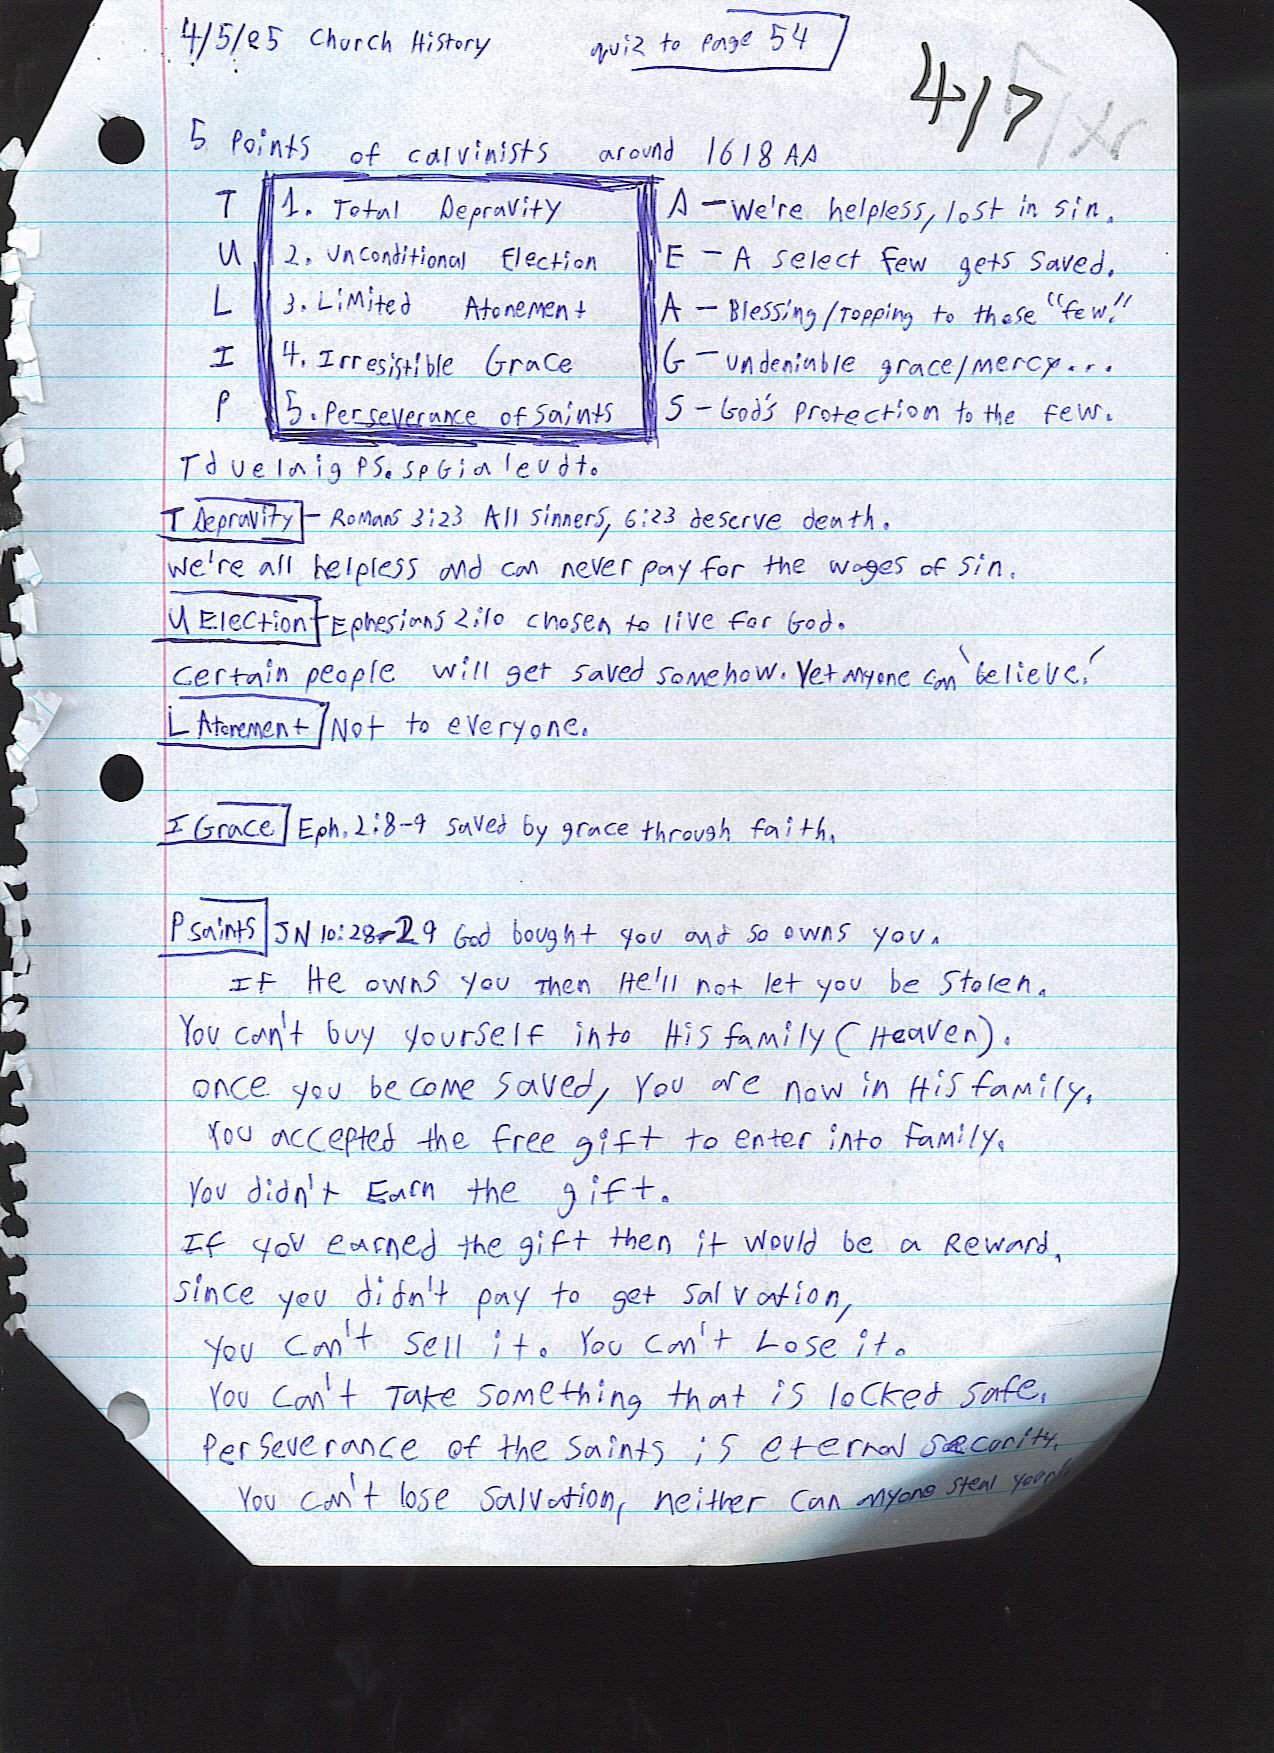 4/5/05 Church History quiz to page 54
4/7
5 Points of calvinists around 1618 AD
T 1. Total Depravity A - We're helpless, lost in sin.
U 2. Unconditional Election E - A select few gets saved.
L 3. Limited Atonement A - Blessing/Topping to those "few!"
I 4. Irresistible Grace G - undeniable grace/mercy...
P 5. Perseverance of Saints S - God's Protection to the few.
Td ue la ig PS. sp Gia leudt.
T Depravity - Romans 3:23 All sinners, 6:23 deserve death.
We're all helpless and can never pay for the wages of sin.
U Election - Ephesians 2:10 chosen to live for God.
certain people will get saved somehow. Yet anyone can 'believe!'
L Atonement Not to everyone.
I Grace Eph. 2:8-9 saved by grace through faith.
P saints JN 10:28-29 God bought you and so owns you.
If He owns you then He'll not let you be stolen.
You can't buy yourself into His family (Heaven).
once you become saved, you are now in His family.
You accepted the free gift to enter into family.
You didn't Earn the gift.
If you earned the gift then it would be a Reward.
since you didn't pay to get salvation,
you can't sell it. You can't Lose it.
You can't Take something that is locked safe.
Perseverance of the saints is eternal security.
You can't lose salvation, neither can anyone steal